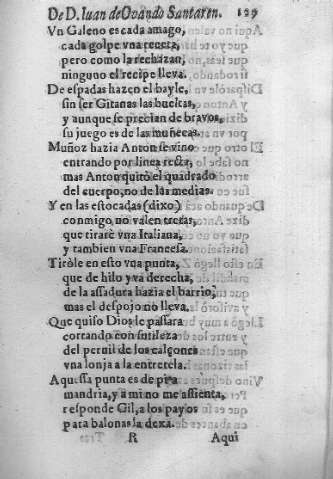 De D. Iuan de Ovando Santaren. 129
Vn Galeno es cada amago,
cada golpe vna receta,
pero como la rechazan,
ninguno el recipe lleva.
De espadas hazen el bayle,
sin ser Gitanas las bueltas,
y aunque se precian de bravos,
su juego es de las muñecas.
Muñoz hazia Anton se vino
entrando por linea recta,
mas Anton quitò el quadrado
del cuerpo, no de las medias.
Y en las estocadas (dixo)
conmigo no valen tretas,
que tirarè vna Italiana,
y tambien vna Francesa.
Tiròle en esto vna punta,
que de hilo yva derecha,
de la assadura hazia el barrio,
mas el despojo no lleva.
Que quiso Dios le passara
cortando con sutileza
del pernil de los calçones
vna lonja a la entretela.
Aquessa punta es de pita
mandria, y a mi no me assienta,
responde Gil, a los payos
para balonas la dexa.
R Aqui